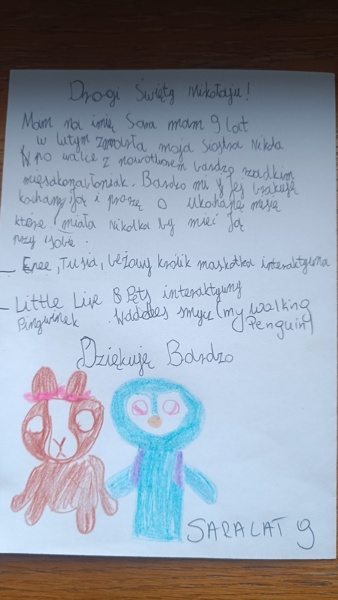 Drogi Święty Mikołaju!
Mam na imię Sara mam 9 lat
w lutym zmarła moja siostra Nikola
po walce z nowotworem bardzo rzadkim
Bardzo mi jej brakuje
kochamy ją i proszę o ukochane misie
które miała Nikolka by mieć ją
przy sobie.
_ Enee, Tusia, beżowy królik maskotka interaktywna
_ Little Live & Pets interaktywny
Pingwinek Waddles smyk (my walking
Penguin)
Dziękuję Bardzo
SARA LAT 9